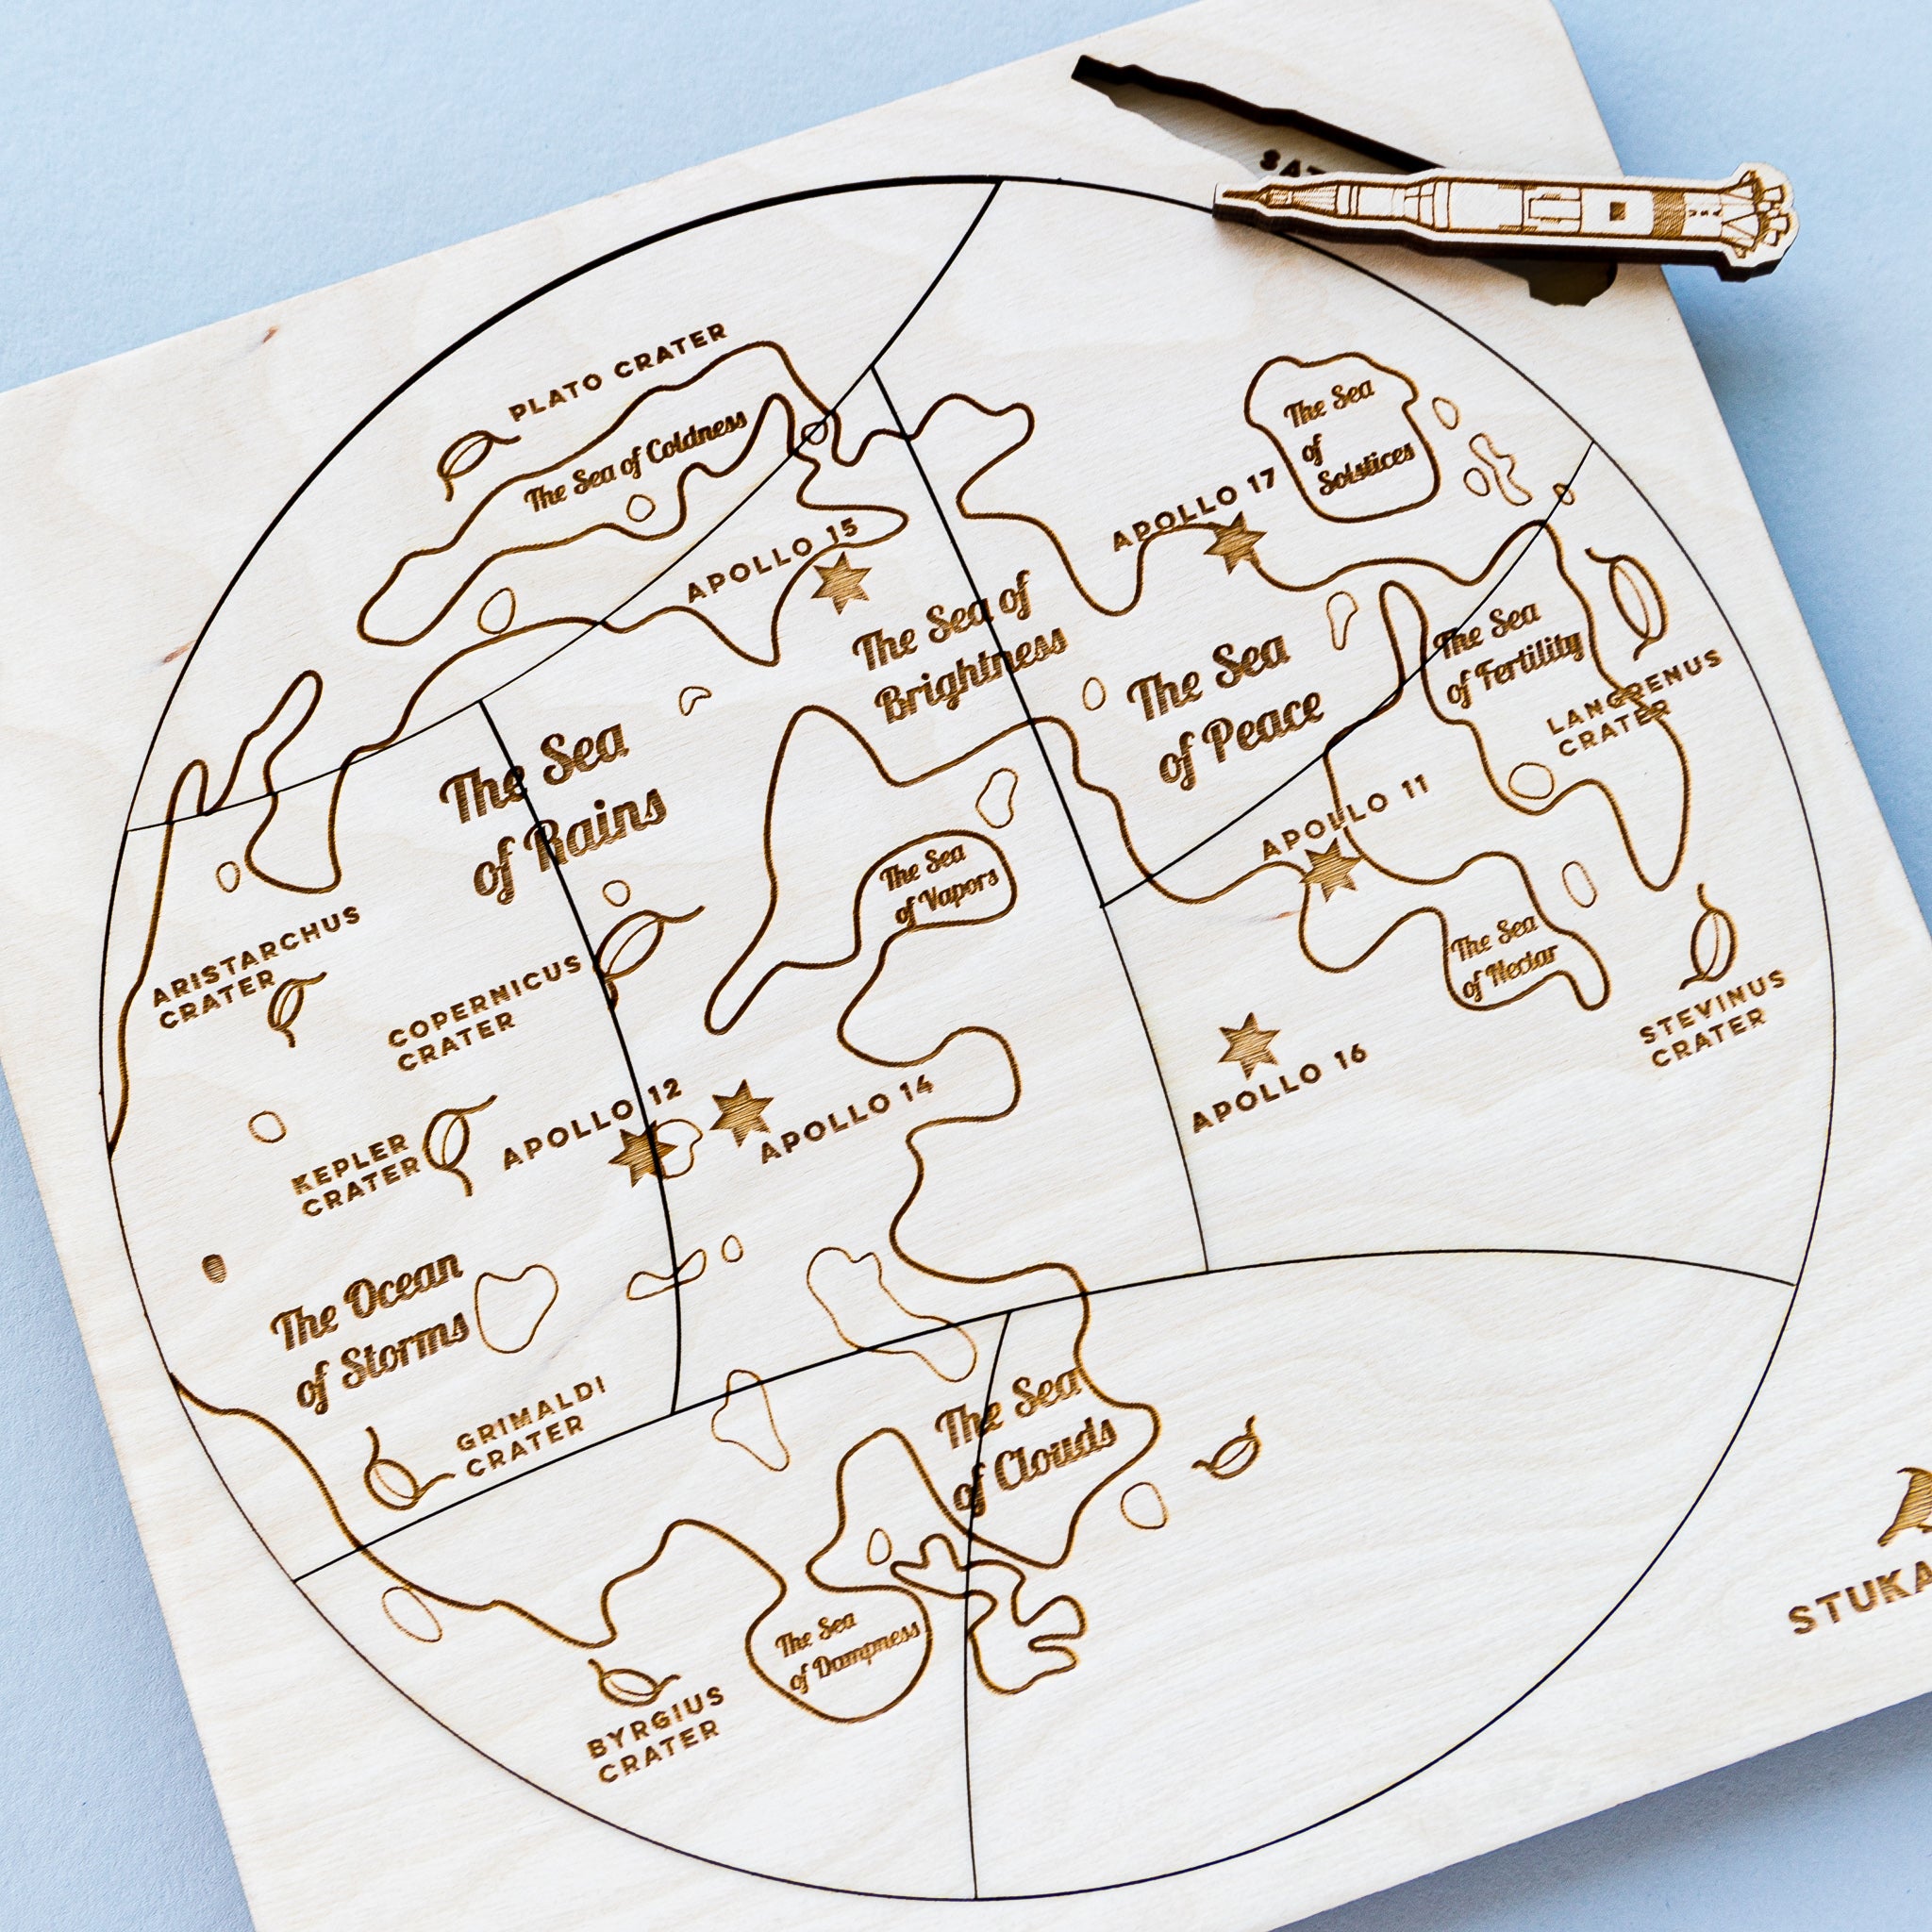 SAT
PLATO CRATER
The Sea of Coldness
The Sea
of
Solstices
APOLLO 17
APOLLO 15
The Sea of
Brightness
The Sea
of Peace
The Sea
of Fertility
LANGRENUS
CRATER
The Sea
of Rains
APOLLO 11
The Sea
of Vapors
The Sea
of Nectar
ARISTARCHUS
CRATER
COPERNICUS
CRATER
STEVINUS
CRATER
APOLLO 16
KEPLER
CRATER
APOLLO 12
APOLLO 14
The Ocean
of Storms
GRIMALDI
CRATER
The Sea
of Clouds
The Sea
of Dampness
BYRGIUS
CRATER
STUKA